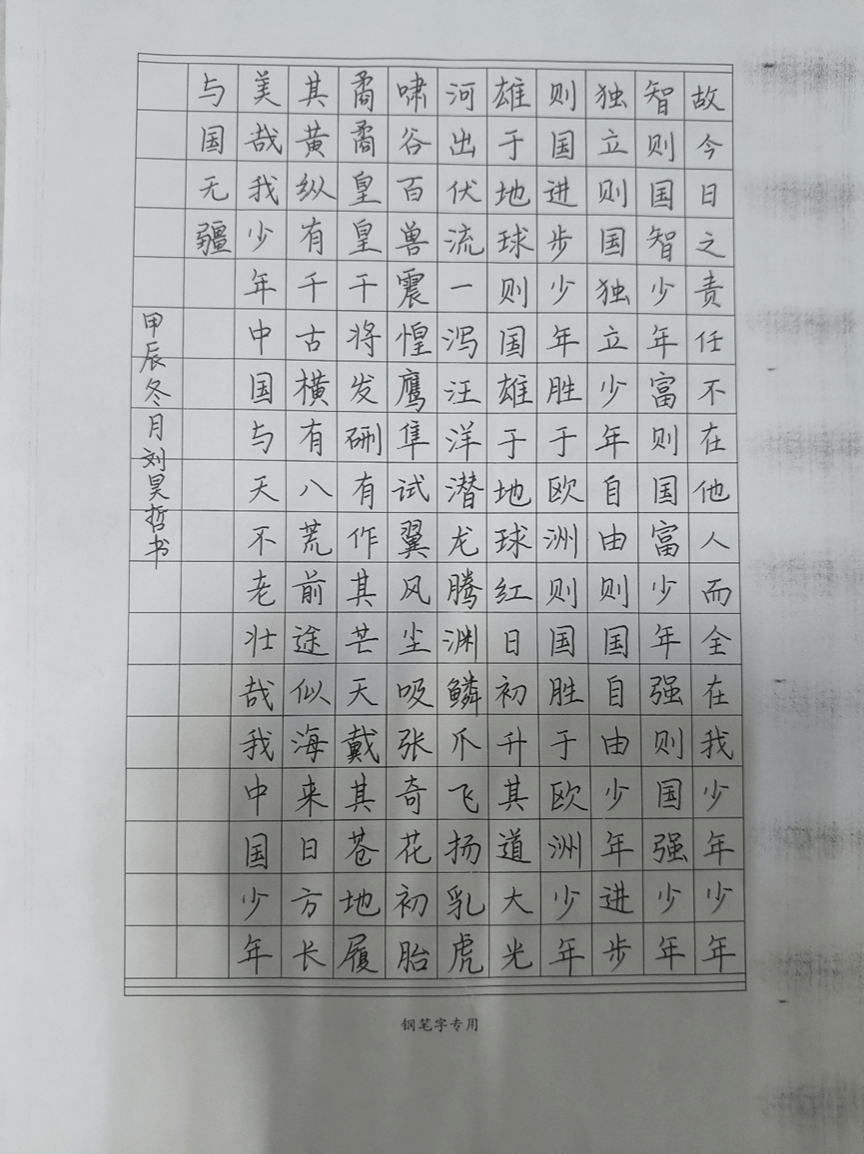 故今日之责任不在他人而全在我少年少年
智则国智少年富则国富少年强则国强少年
独立则国独立少年自由则国自由少年进步
则国进步少年胜于欧洲则国胜于欧洲少年
雄于地球则国雄于地球红日初升其道大光
河出伏流一泻汪洋潜龙腾渊鳞爪飞扬乳虎
啸谷百兽震惶鹰隼试翼风尘吸张奇花初胎
矞矞皇皇干将发硎有作其芒天戴其苍地履
其黄纵有千古横有八荒前途似海来日方长
美哉我少年中国与天不老壮哉我中国少年
与国无疆
甲辰冬月刘昊哲书
钢笔字专用